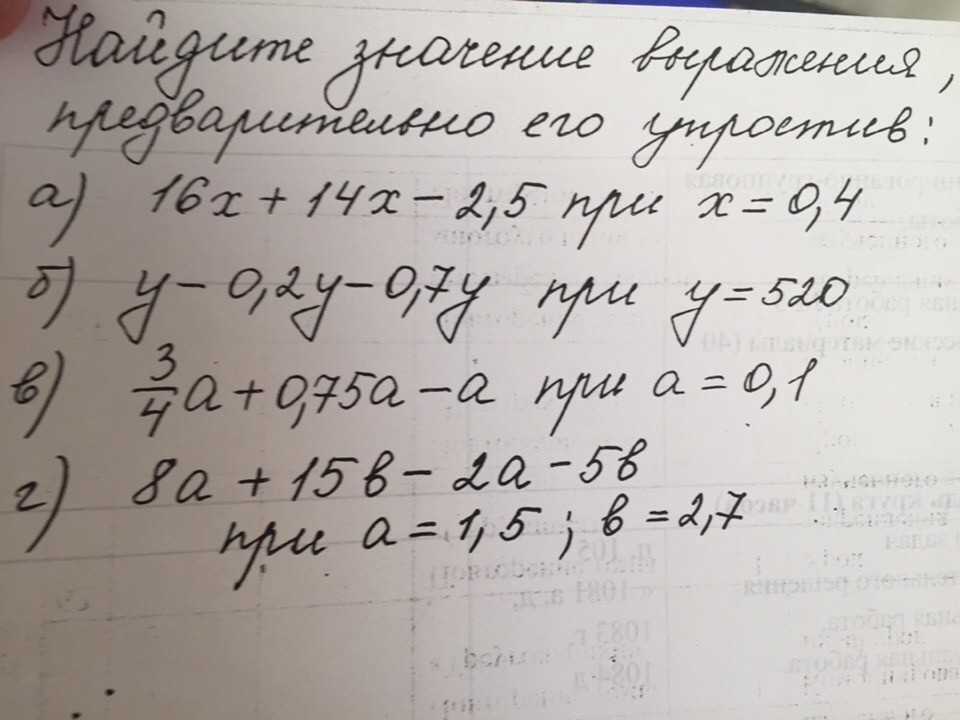 Найдите значение выражения,
предварительно его упростив:
а) 16x + 14x − 2,5 при x = 0,4
б) y − 0,2y − 0,7y при y = 520
в) 3/4a + 0,75a − a при a = 0,1
г) 8a + 15в − 2a − 5в
при a = 1,5; в = 2,7